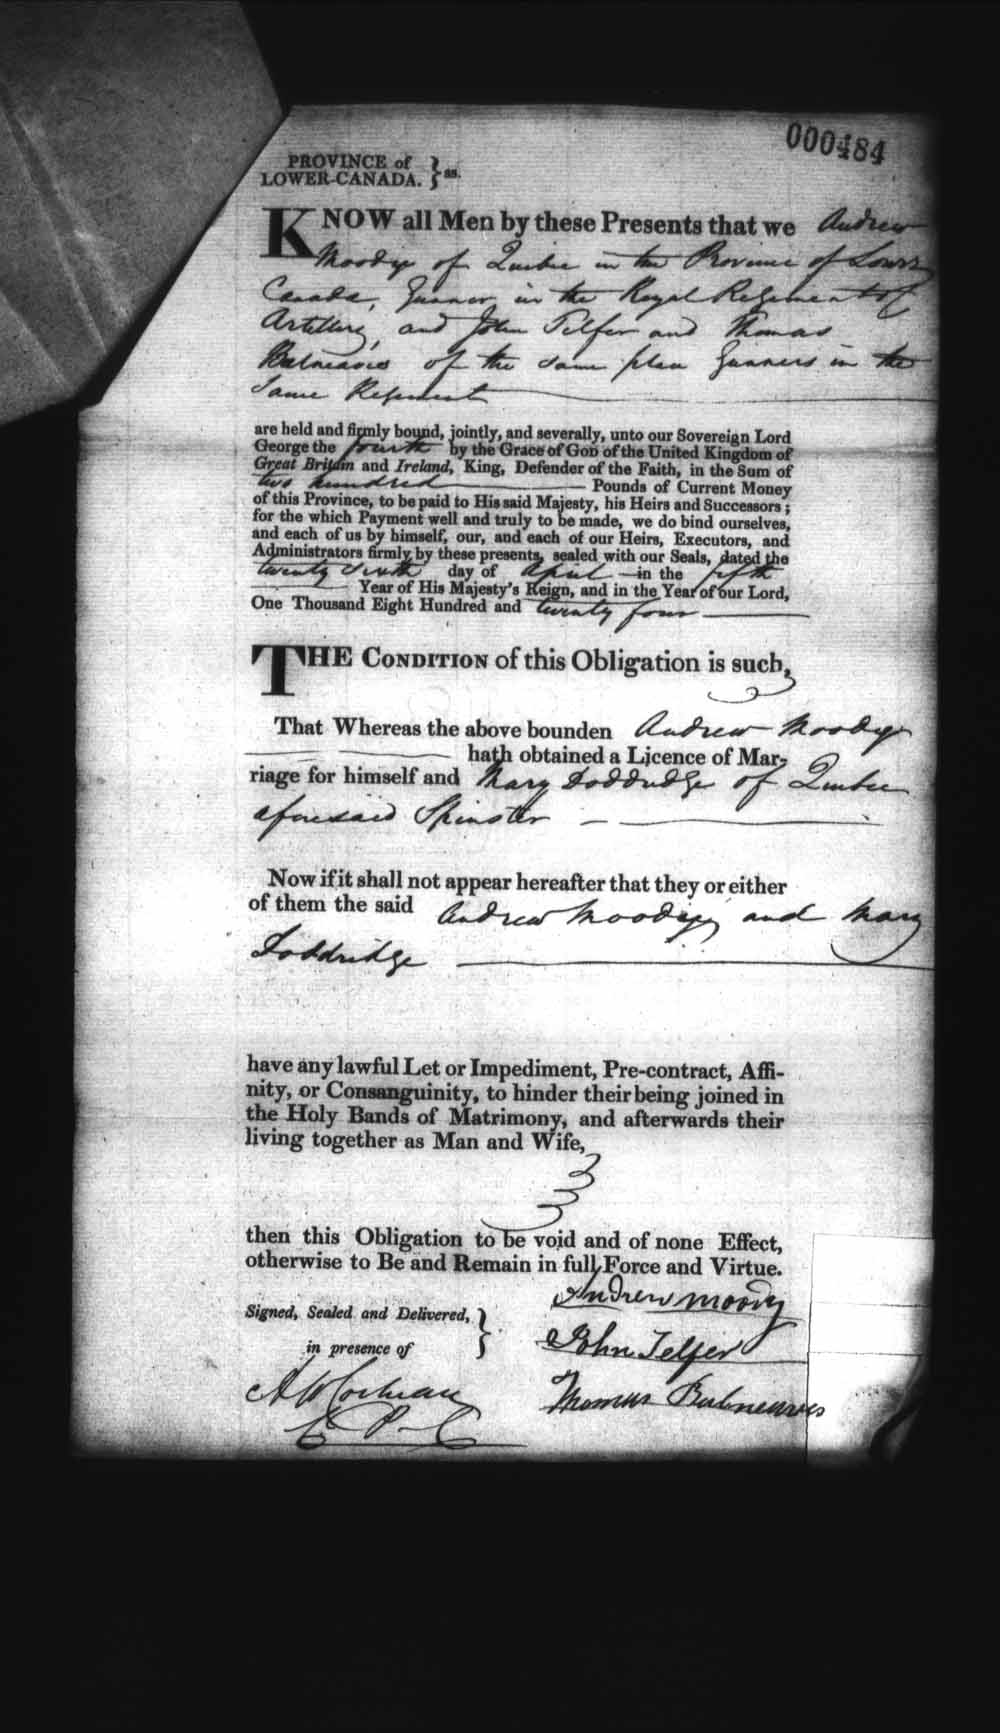 000484
PROVINCE of
LOWER-CANADA. } ss.
KNOW all Men by these Presents that we Andrew
Moody of Quebec in the Province of Lower
Canada, Gunner in the Royal Regiment of
Artillery, and John Telfer and Thomas
of the same place Gunners in the
same Regiment
are held and firmly bound, jointly, and severally, unto our Sovereign Lord
George the fourth by the Grace of GOD of the United Kingdom of
Great Britain and Ireland, King, Defender of the Faith, in the Sum of
two hundred Pounds of Current Money
of this Province, to be paid to His said Majesty, his Heirs and Successors;
for the which Payment well and truly to be made, we do bind ourselves,
and each of us by himself, our, and each of our Heirs, Executors, and
Administrators firmly by these presents, sealed with our Seals, dated the
twenty sixth day of April in the fifth
Year of His Majesty's Reign, and in the Year of our Lord,
One Thousand Eight Hundred and twenty four
THE CONDITION of this Obligation is such,
That Whereas the above bounden Andrew Moody
hath obtained a Licence of Mar-
riage for himself and Mary Doddridge of Quebec
aforesaid Spinster
Now if it shall not appear hereafter that they or either
of them the said Andrew Moody and Mary
Doddridge
have any lawful Let or Impediment, Pre-contract, Affi-
nity, or Consanguinity, to hinder their being joined in
the Holy Bands of Matrimony, and afterwards their
living together as Man and Wife,
then this Obligation to be void and of none Effect,
otherwise to Be and Remain in full Force and Virtue.
Andrew Moody
Signed, Sealed and Delivered,
in presence of }
John Telfer
A W Cochran
Thomas